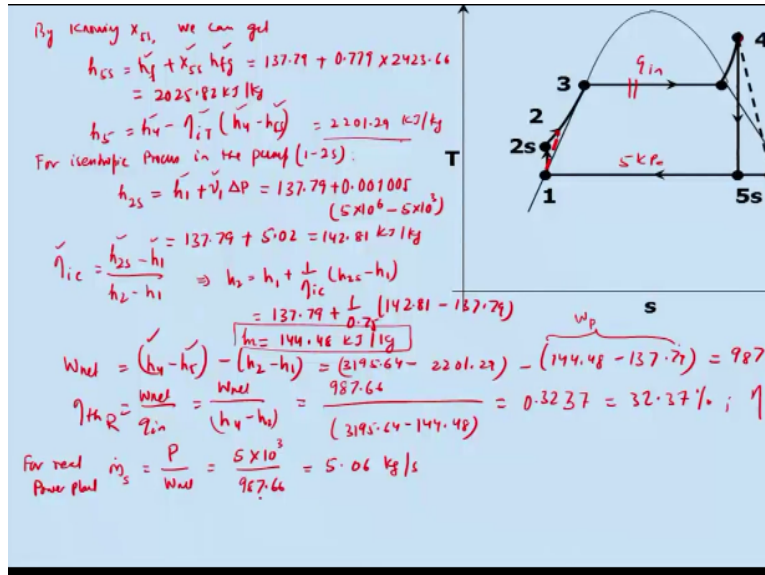 By knowing x₅ₛ, we can get
h₅ₛ = h_f + x₅ₛ h_fg = 137.79 + 0.779 × 2423.66
= 2025.82 kJ/kg
h₅ = h₄ - η_iT (h₄ - h₅ₛ) = 2201.29 kJ/kg
For isentropic Process in the pump (1-2s):
h₂ₛ = h₁ + v₁ ΔP = 137.79 + 0.001005
(5×10⁶ - 5×10³)
= 137.79 + 5.02 = 142.81 kJ/kg
η_ic = (h₂ₛ - h₁) / (h₂ - h₁) ⇒ h₂ = h₁ + 1/η_ic (h₂ₛ - h₁)
= 137.79 + 1/0.75 (142.81 - 137.79)
h₂ = 144.48 kJ/kg
W_net = (h₄ - h₅) - (h₂ - h₁) = (3195.64 - 2201.29) - (144.48 - 137.79) = 987
W_P
η_th R = W_net / q_in = W_net / (h₄ - h₂) = 987.66 / (3195.64 - 144.48) = 0.3237 = 32.37% ; η
For real Power plant ṁ_s = P / W_net = 5×10³ / 987.66 = 5.06 kg/s
T
s
1
2s
2
3
4
5s
q_in
5 kPa